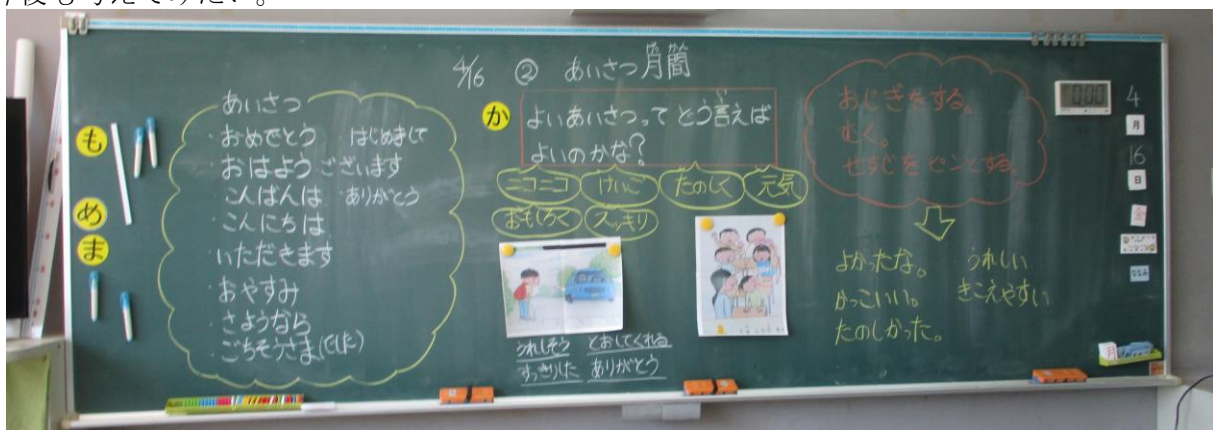 4/6 ② あいさつ月間
も
め
ま
あいさつ
・おめでとう はじめまして
・おはようございます
・こんばんは ありがとう
・こんにちは
・いただきます
・おやすみ
・さようなら
・ごちそうさま(でした)
か
よいあいさつって どう言えば
い
よいのかな?
ニコニコ けいご たのしく 元気
おもしろく スッキリ
うれしそう とおしてくれる
すっきりした ありがとう
おじぎをする。
むく。
せすじをピンとする
よかったな。 うれしい
かっこいい。 きこえやすい
たのしかった。
4
月
16
日
金
月